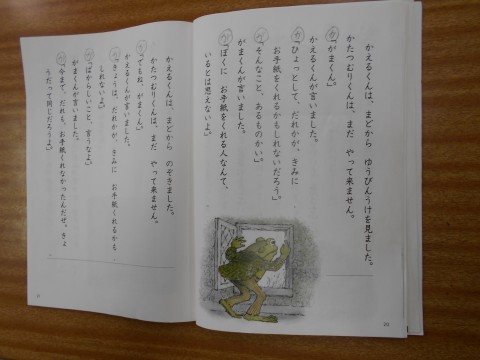 かえるくんは、まどから ゆうびんうけを見ました。
かたつむりくんは、まだ やって来ません。
か「がまくん。」
かえるくんが言いました。
か「ひょっとして、だれかが、きみに
お手紙をくれるかもしれないだろう。」
が「そんなこと、あるものかい。」
がまくんが言いました。
が「ぼくに お手紙をくれる人なんて、
いるとは思えないよ。」
かえるくんは、まどから のぞきました。
かたつむりくんは、まだ やって来ません。
か「でもね、がまくん。」
かえるくんが言いました。
か「きょうは、だれかが、きみに お手紙くれるかも
しれないよ。」
が「ばからしいこと、言うなよ。」
がまくんが言いました。
が「今まで、だれも、お手紙くれなかったんだぜ。きょ
うだって同じだろうよ。」